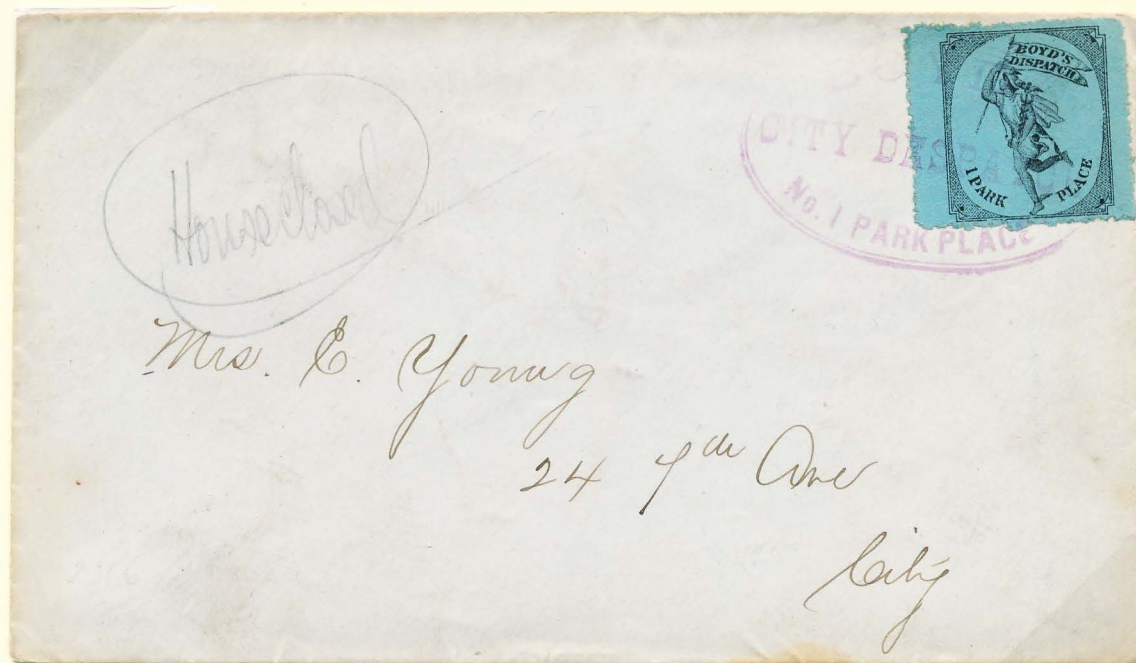 BOYD'S
DISPATCH
1 PARK PLACE
CITY DESPA
No. 1 PARK PLACE
House Closed
Mrs. E. Young
24 7th Ave
City